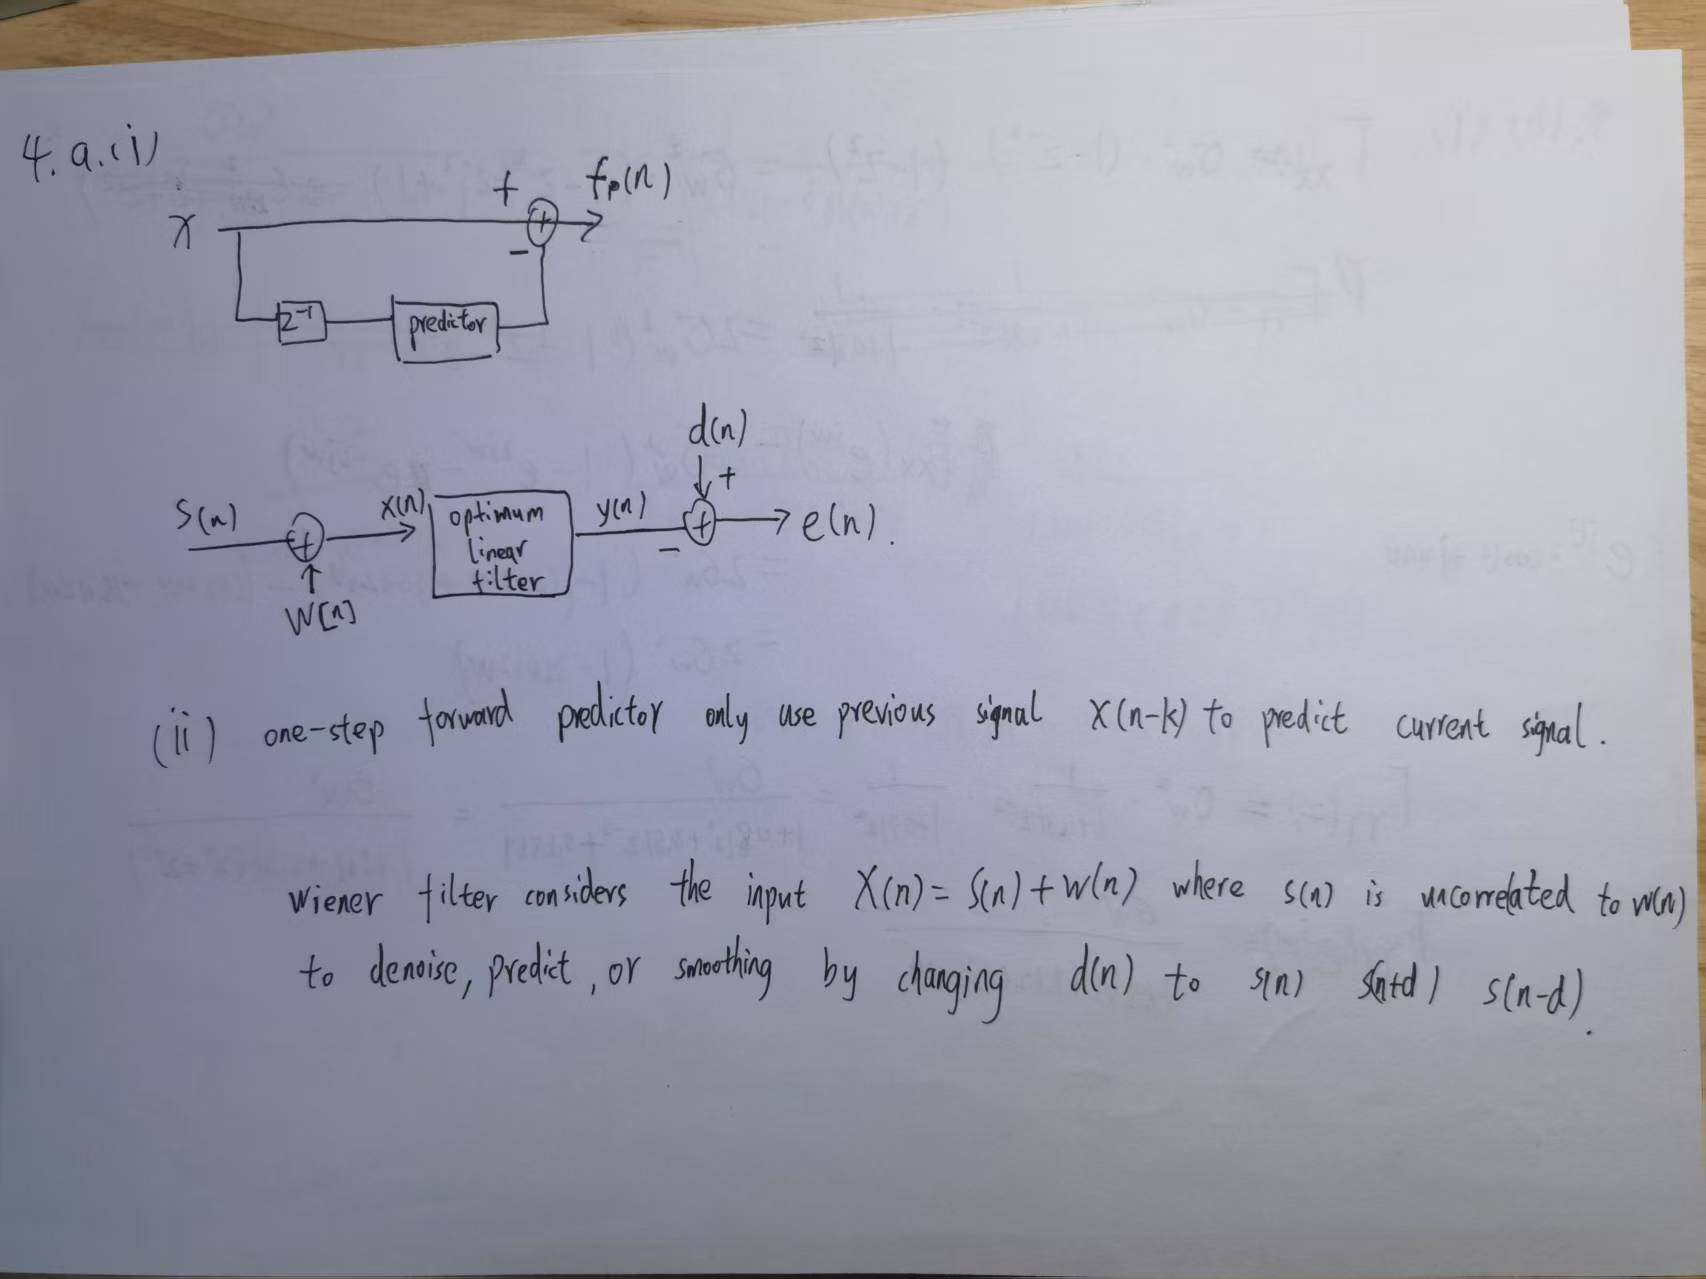 4. a. (i)
x + fp(n)
+
-
z⁻¹ predictor
d(n)
+
S(n) x(n) optimum linear filter y(n) + e(n).
+ -
W[n]
(ii) one-step forward predictor only use previous signal x(n-k) to predict current signal.
Wiener filter considers the input X(n) = S(n) + w(n) where s(n) is uncorrelated to w(n)
to denoise, predict, or smoothing by changing d(n) to s(n) s(n+d) s(n-d).